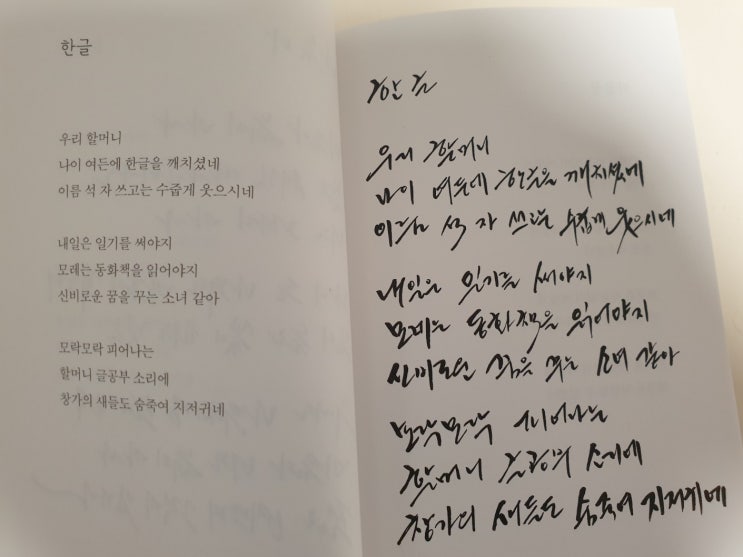 한글
우리 할머니
나이 여든에 한글을 깨치셨네
이름 석 자 쓰고는 수줍게 웃으시네
내일은 일기를 써야지
모레는 동화책을 읽어야지
신비로운 꿈을 꾸는 소녀 같아
모락모락 피어나는
할머니 글공부 소리에
창가의 새들도 숨죽여 지저귀네
한글
우리 할머니
나이 여든에 한글을 깨치셨네
이름 석 자 쓰고는 수줍게 웃으시네
내일은 일기를 써야지
모레는 동화책을 읽어야지
신비로운 꿈을 꾸는 소녀 같아
모락모락 피어나는
할머니 글공부 소리에
창가의 새들도 숨죽여 지저귀네